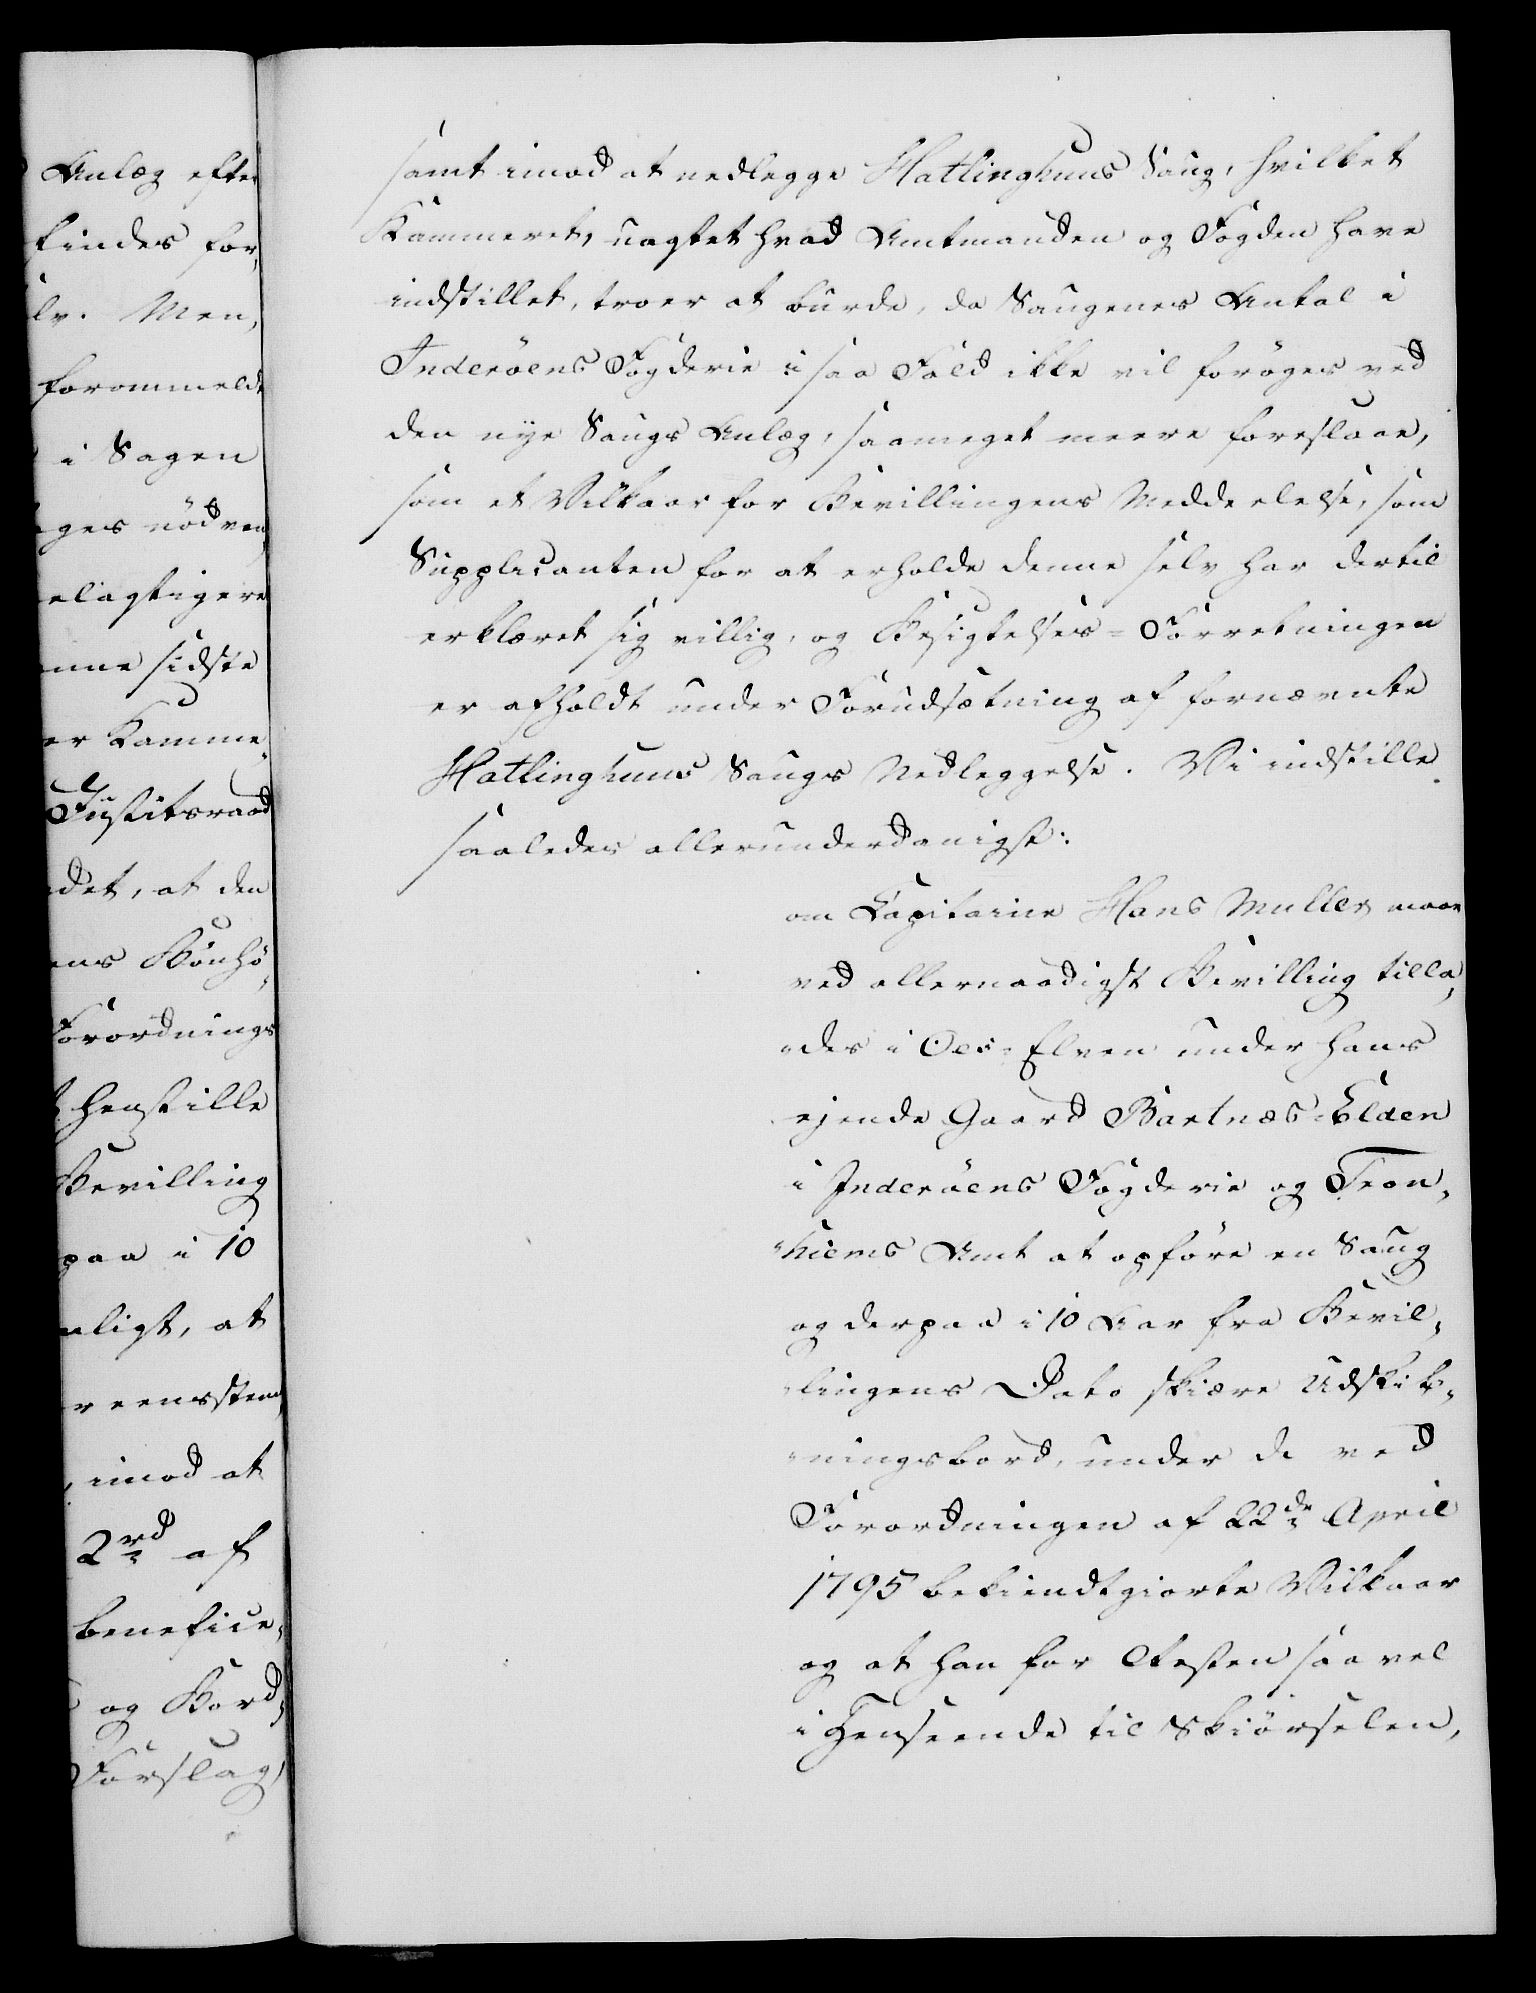 Anlæg efter
findes for,
lv. Men,
forommeldt
i Sagen
ges nödven,
elagtigere
nne sidste
er Kamme,
Justitsraad
det, at den
ens Bönhö,
Forordnings
henstille
Bevilling
paa i 10
nligt, at
r eensstem,
, imod at
2rd af
benefice,
og Bord,
Forslag,
samt imod at nedlegge Hatlinghuus Saug, hvilket
Kammeret, uagtet hvad Amtmanden og Fogden have
indstillet, troer at burde, da Saugenes Antal i
Inderöens Fogderie i saa Fald ikke vil foröges ved
den nye Saugs Anlæg, saameget meere foreslaae,
som et Vilkaar for Bevillingens Meddeelelse, som
Supplicanten for at erholde denne selv har dertil
erklæret sig villig, og Besigtelses-Forretningen
er afholdt under Forudsætning af fornævnte
Hatlinghuus Saugs Nedleggelse. Vi indstille
saaledes allerunderdanigst:
om Capitaine Hans Muller maae
ved allernaadigst Bevilling tilla,
des i Oes-Elven under hans
ejende Gaard Bartnæs-Elden
i Inderöens Fogderie og Tron,
hiems Amt at opföre en Saug
og derpaa i 10 Aar fra Bevil,
lingens Dato skiære Udskib,
ningsbord, under de ved
Forordningen af 22de April
1795 bekiendtgiorte Vilkaar
og at han for Resten saavel
i Henseende til Skiörselen,